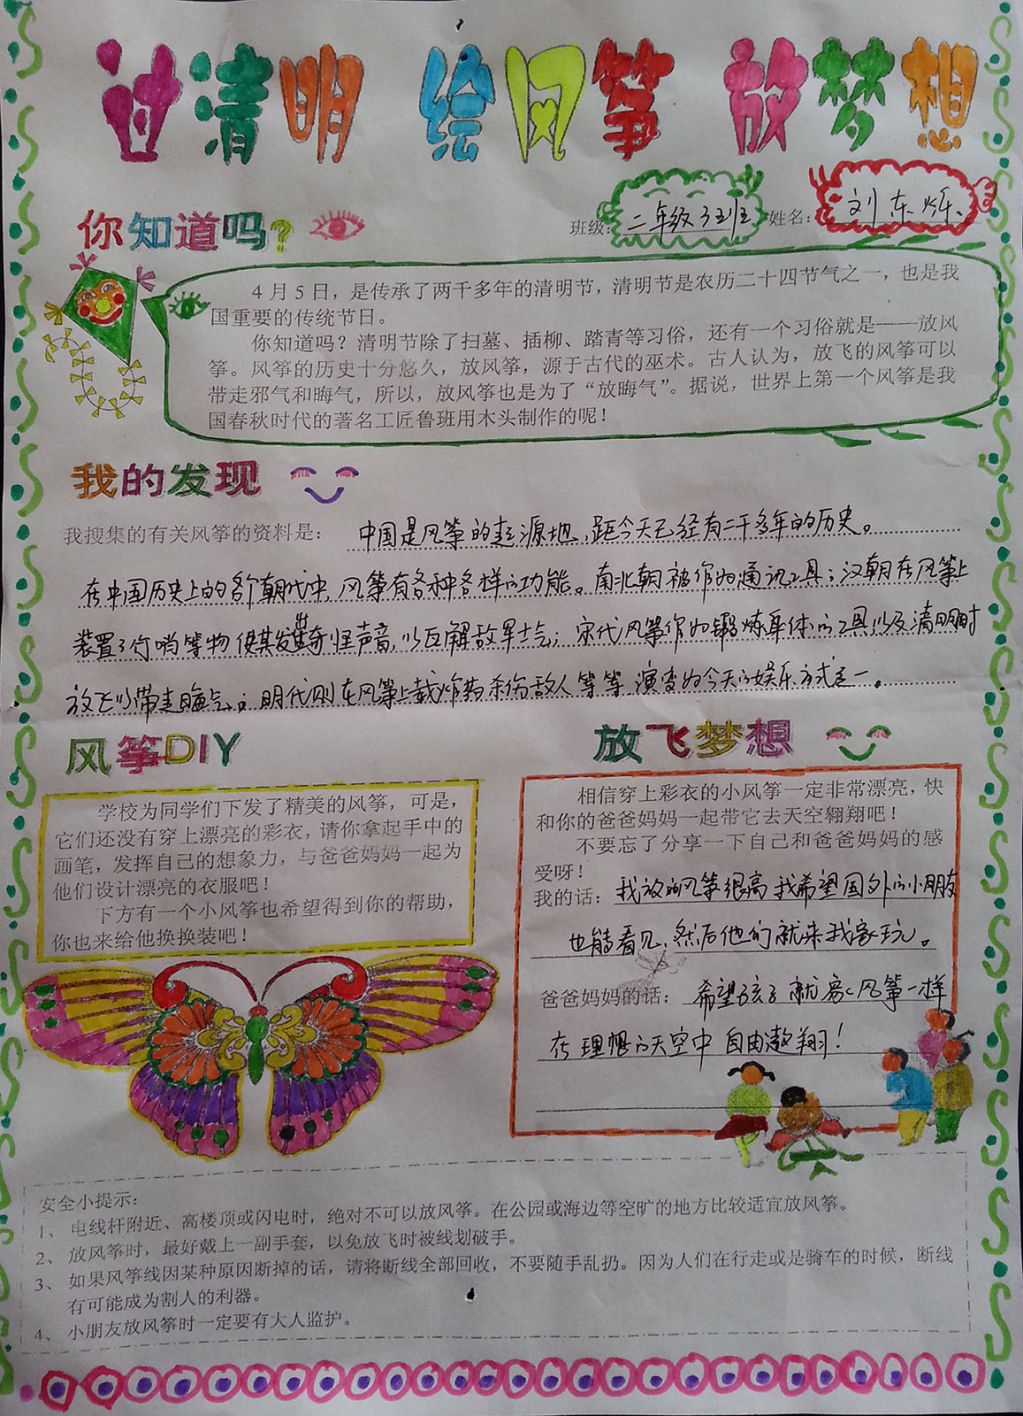 过清明 绘风筝 放梦想
你知道吗?
班级: 二年级3班 姓名: 刘东烁
4月5日，是传承了两千多年的清明节，清明节是农历二十四节气之一，也是我
国重要的传统节日。
你知道吗？清明节除了扫墓、插柳、踏青等习俗，还有一个习俗就是——放风
筝。风筝的历史十分悠久，放风筝，源于古代的巫术。古人认为，放飞的风筝可以
带走邪气和晦气，所以，放风筝也是为了“放晦气”。据说，世界上第一个风筝是我
国春秋时代的著名工匠鲁班用木头制作的呢！
我的发现
我搜集的有关风筝的资料是： 中国是风筝的起源地，距今天已经有二千多年的历史。
在中国历史上的各个朝代中，风筝有各种各样的功能。南北朝被作为通讯工具；汉朝在风筝上
装置了竹哨等物使其发出奇怪声音，以瓦解敌军士气；宋代风筝作为锻炼身体的工具，以及清明时
放飞以带走晦气。；明代则在风筝上载炸药杀伤敌人等等，演变为今天的娱乐方式之一。
风筝DIY
学校为同学们下发了精美的风筝，可是，
它们还没有穿上漂亮的彩衣，请你拿起手中的
画笔，发挥自己的想象力，与爸爸妈妈一起为
他们设计漂亮的衣服吧！
下方有一个小风筝也希望得到你的帮助，
你也来给他换换装吧！
放飞梦想
相信穿上彩衣的小风筝一定非常漂亮，快
和你的爸爸妈妈一起带它去天空翱翔吧！
不要忘了分享一下自己和爸爸妈妈的感
受呀！
我的话： 我放的风筝很高，我希望国外的小朋友
也能看见，然后他们就来我家玩。
爸爸妈妈的话： 希望孩子就像风筝一样
在理想的天空中自由遨翔！
安全小提示：
1、 电线杆附近、高楼顶或闪电时，绝对不可以放风筝。在公园或海边等空旷的地方比较适宜放风筝。
2、 放风筝时，最好戴上一副手套，以免放飞时被线划破手。
3、 如果风筝线因某种原因断掉的话，请将断线全部回收，不要随手乱扔。因为人们在行走或是骑车的时候，断线
有可能成为割人的利器。
4、 小朋友放风筝时一定要有大人监护。